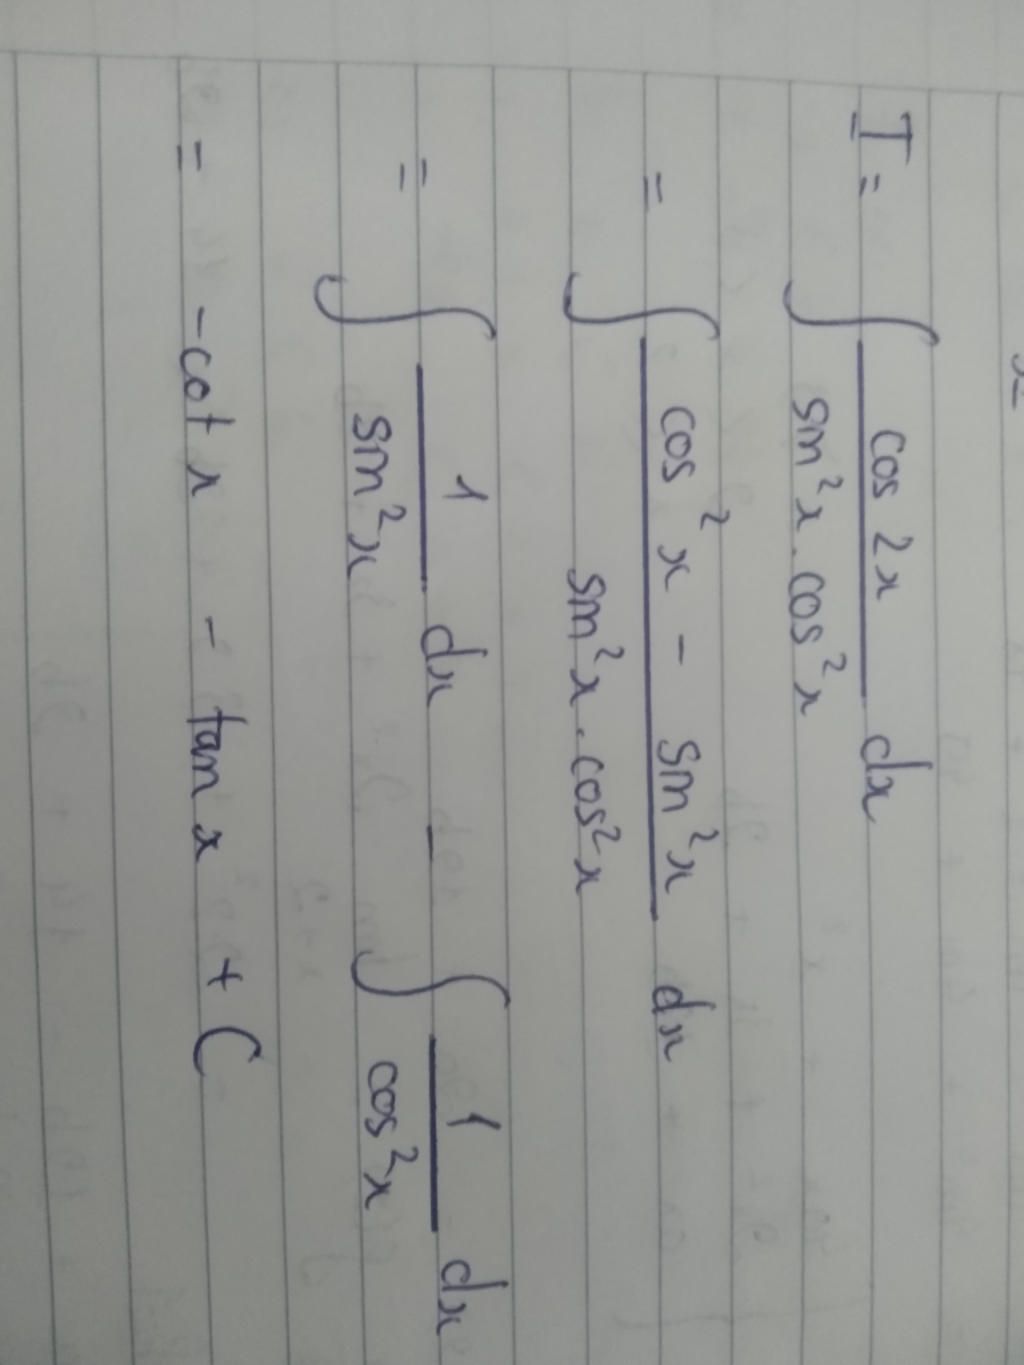 I = ∫ cos 2x / sin²x . cos²x dx
= ∫ cos²x - sin²x / sin²x . cos²x dx
= ∫ 1 / sin²x dx - ∫ 1 / cos²x dx
= -cot x - tan x + C